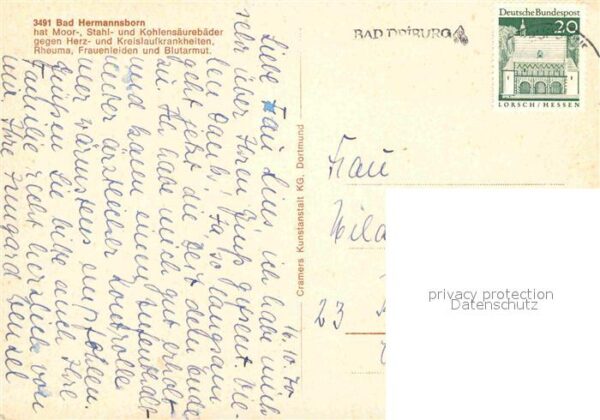 3491 Bad Hermannsborn
hat Moor-, Stahl- und Kohlensäurebäder
gegen Herz- und Kreislaufkrankheiten,
Rheuma, Frauenleiden und Blutarmut.
BAD DRIBURG
Deutsche Bundespost
20
LORSCH/HESSEN
16.10.70
Liebe Frau ich habe mich
sehr über Ihren Gruß gefreut. Vie-
len Dank! Ja, so langsam
geht jetzt die Zeit dem Ende
zu. Ich habe mich gut erholt
und kann einen
unter ärztlicher Kontrolle
nur wärmstens empfohlen.
Grüßen Sie bitte auch Ihre
Familie recht herzlich von
Ihre Irmgard
Cramers Kunstanstalt KG, Dortmund
Frau
23
privacy protection
Datenschutz